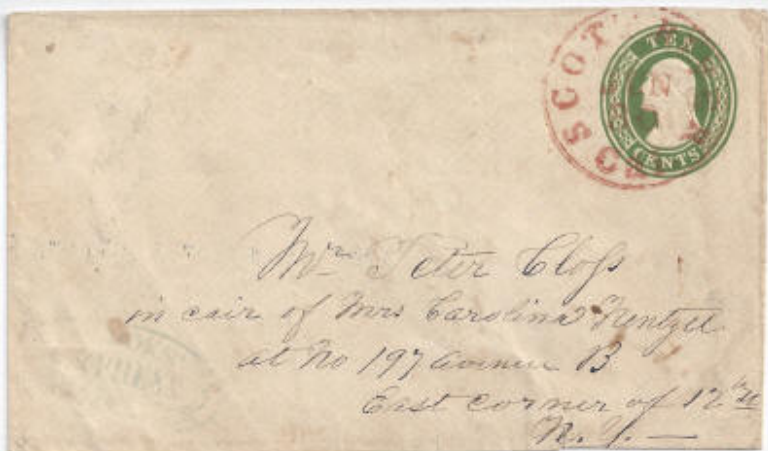 TEN
CENTS
Mr Peter Closs
in cair of Mrs Carolina
at No 197 Avenue B
East corner of 12th
N. Y.